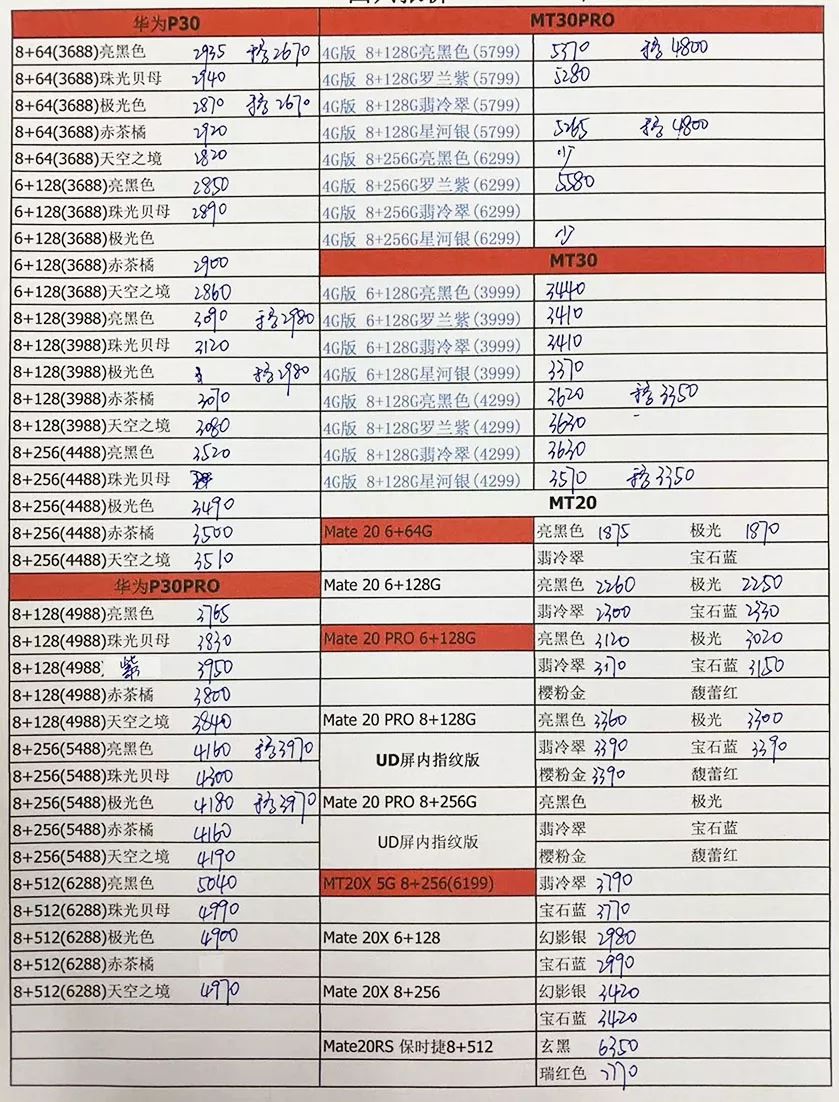 华为P30
8+64(3688)亮黑色 2935 移2670
8+64(3688)珠光贝母 2940
8+64(3688)极光色 2870 移2670
8+64(3688)赤茶橘 2920
8+64(3688)天空之境 2820
6+128(3688)亮黑色 2850
6+128(3688)珠光贝母 2890
6+128(3688)极光色
6+128(3688)赤茶橘 2900
6+128(3688)天空之境 2860
8+128(3988)亮黑色 3090 移2980
8+128(3988)珠光贝母 3120
8+128(3988)极光色 移2980
8+128(3988)赤茶橘 3070
8+128(3988)天空之境 3080
8+256(4488)亮黑色 3520
8+256(4488)珠光贝母
8+256(4488)极光色 3490
8+256(4488)赤茶橘 3500
8+256(4488)天空之境 3510
华为P30PRO
8+128(4988)亮黑色 3765
8+128(4988)珠光贝母 3830
8+128(4988) 紫 3950
8+128(4988)赤茶橘 3800
8+128(4988)天空之境 3840
8+256(5488)亮黑色 4160 移3970
8+256(5488)珠光贝母 4300
8+256(5488)极光色 4180 移3970
8+256(5488)赤茶橘 4160
8+256(5488)天空之境 4190
8+512(6288)亮黑色 5040
8+512(6288)珠光贝母 4990
8+512(6288)极光色 4900
8+512(6288)赤茶橘
8+512(6288)天空之境 4970
MT30PRO
4G版 8+128G亮黑色(5799) 5370 移4800
4G版 8+128G罗兰紫(5799) 5280
4G版 8+128G翡冷翠(5799)
4G版 8+128G星河银(5799) 5265 移4800
4G版 8+256G亮黑色(6299) 少
4G版 8+256G罗兰紫(6299) 5580
4G版 8+256G翡冷翠(6299)
4G版 8+256G星河银(6299) 少
MT30
4G版 6+128G亮黑色(3999) 3440
4G版 6+128G罗兰紫(3999) 3410
4G版 6+128G翡冷翠(3999) 3410
4G版 6+128G星河银(3999) 3370
4G版 8+128G亮黑色(4299) 3620 移3350
4G版 8+128G罗兰紫(4299) 3630
4G版 8+128G翡冷翠(4299) 3630
4G版 8+128G星河银(4299) 3570 移3350
MT20
Mate 20 6+64G 亮黑色 1875 极光 1870
翡冷翠 宝石蓝
Mate 20 6+128G 亮黑色 2260 极光 2250
翡冷翠 2300 宝石蓝 2330
Mate 20 PRO 6+128G 亮黑色 3120 极光 3020
翡冷翠 3170 宝石蓝 3150
樱粉金 馥蕾红
Mate 20 PRO 8+128G 亮黑色 3360 极光 3300
UD屏内指纹版 翡冷翠 3390 宝石蓝 3390
樱粉金 3390 馥蕾红
Mate 20 PRO 8+256G 亮黑色 极光
UD屏内指纹版 翡冷翠 宝石蓝
樱粉金 馥蕾红
MT20X 5G 8+256(6199) 翡冷翠 3790
宝石蓝 3770
Mate 20X 6+128 幻影银 2980
宝石蓝 2990
Mate 20X 8+256 幻影银 3420
宝石蓝 3420
Mate20RS 保时捷8+512 玄黑 6350
瑞红色